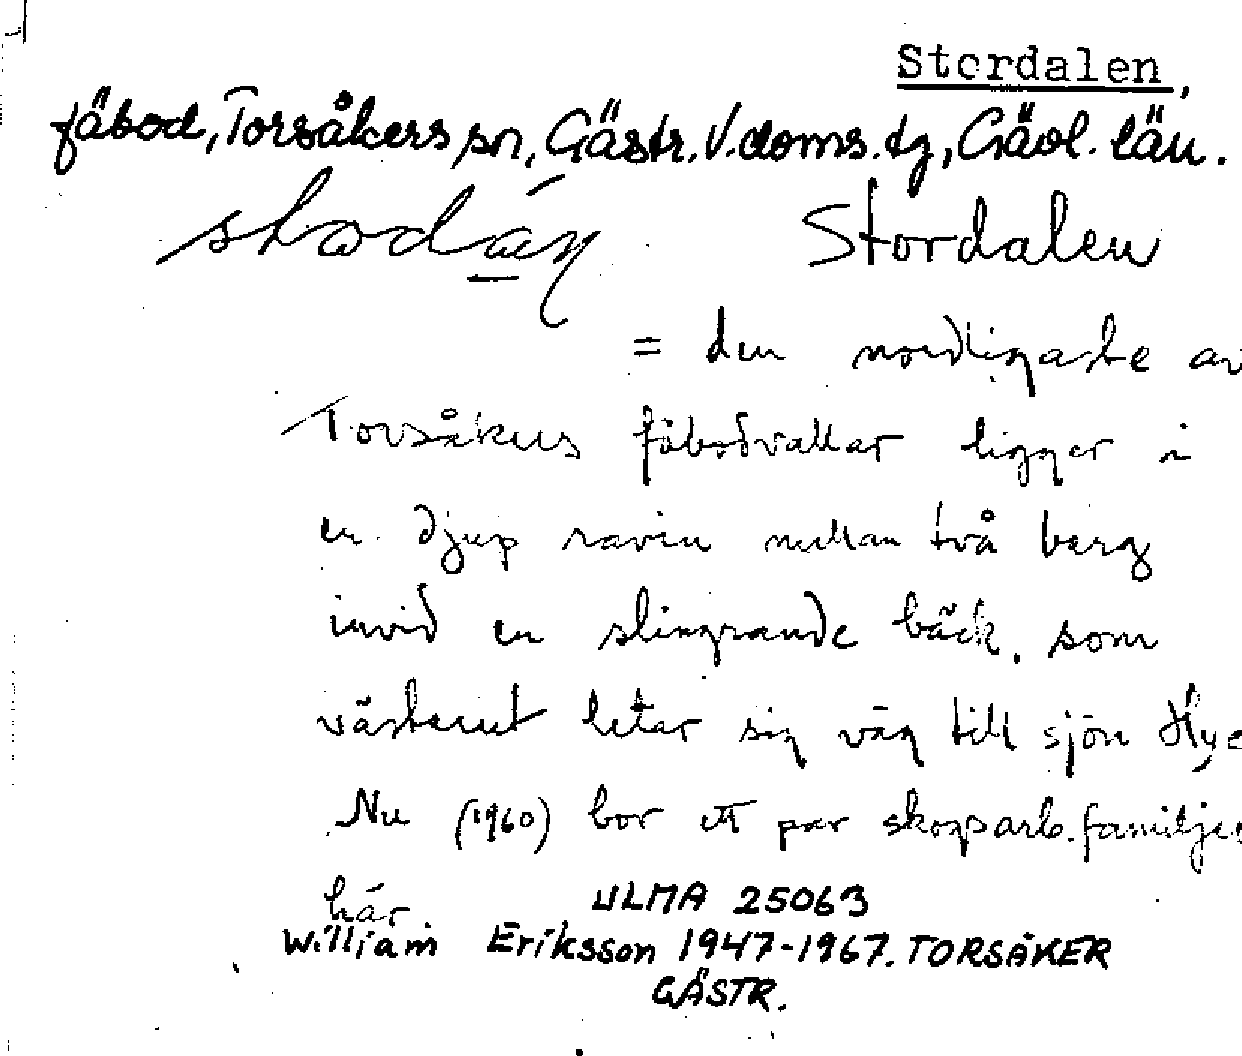 Stordalen,
fäbod, Torsåkers sn, Gästr. V. doms. tg, Gävl. län.
Stordalen
= den nordligaste av
Torsåkers fäbodvallar ligger i
en djup ravin mellan två berg
invid en slingrande bäck, som
västerut letar sig väg till sjön Hye
Nu (1960) bor ett par skogsarb.familjer
här
ULMA 25063
William Eriksson 1947-1967. TORSÅKER
GÄSTR.